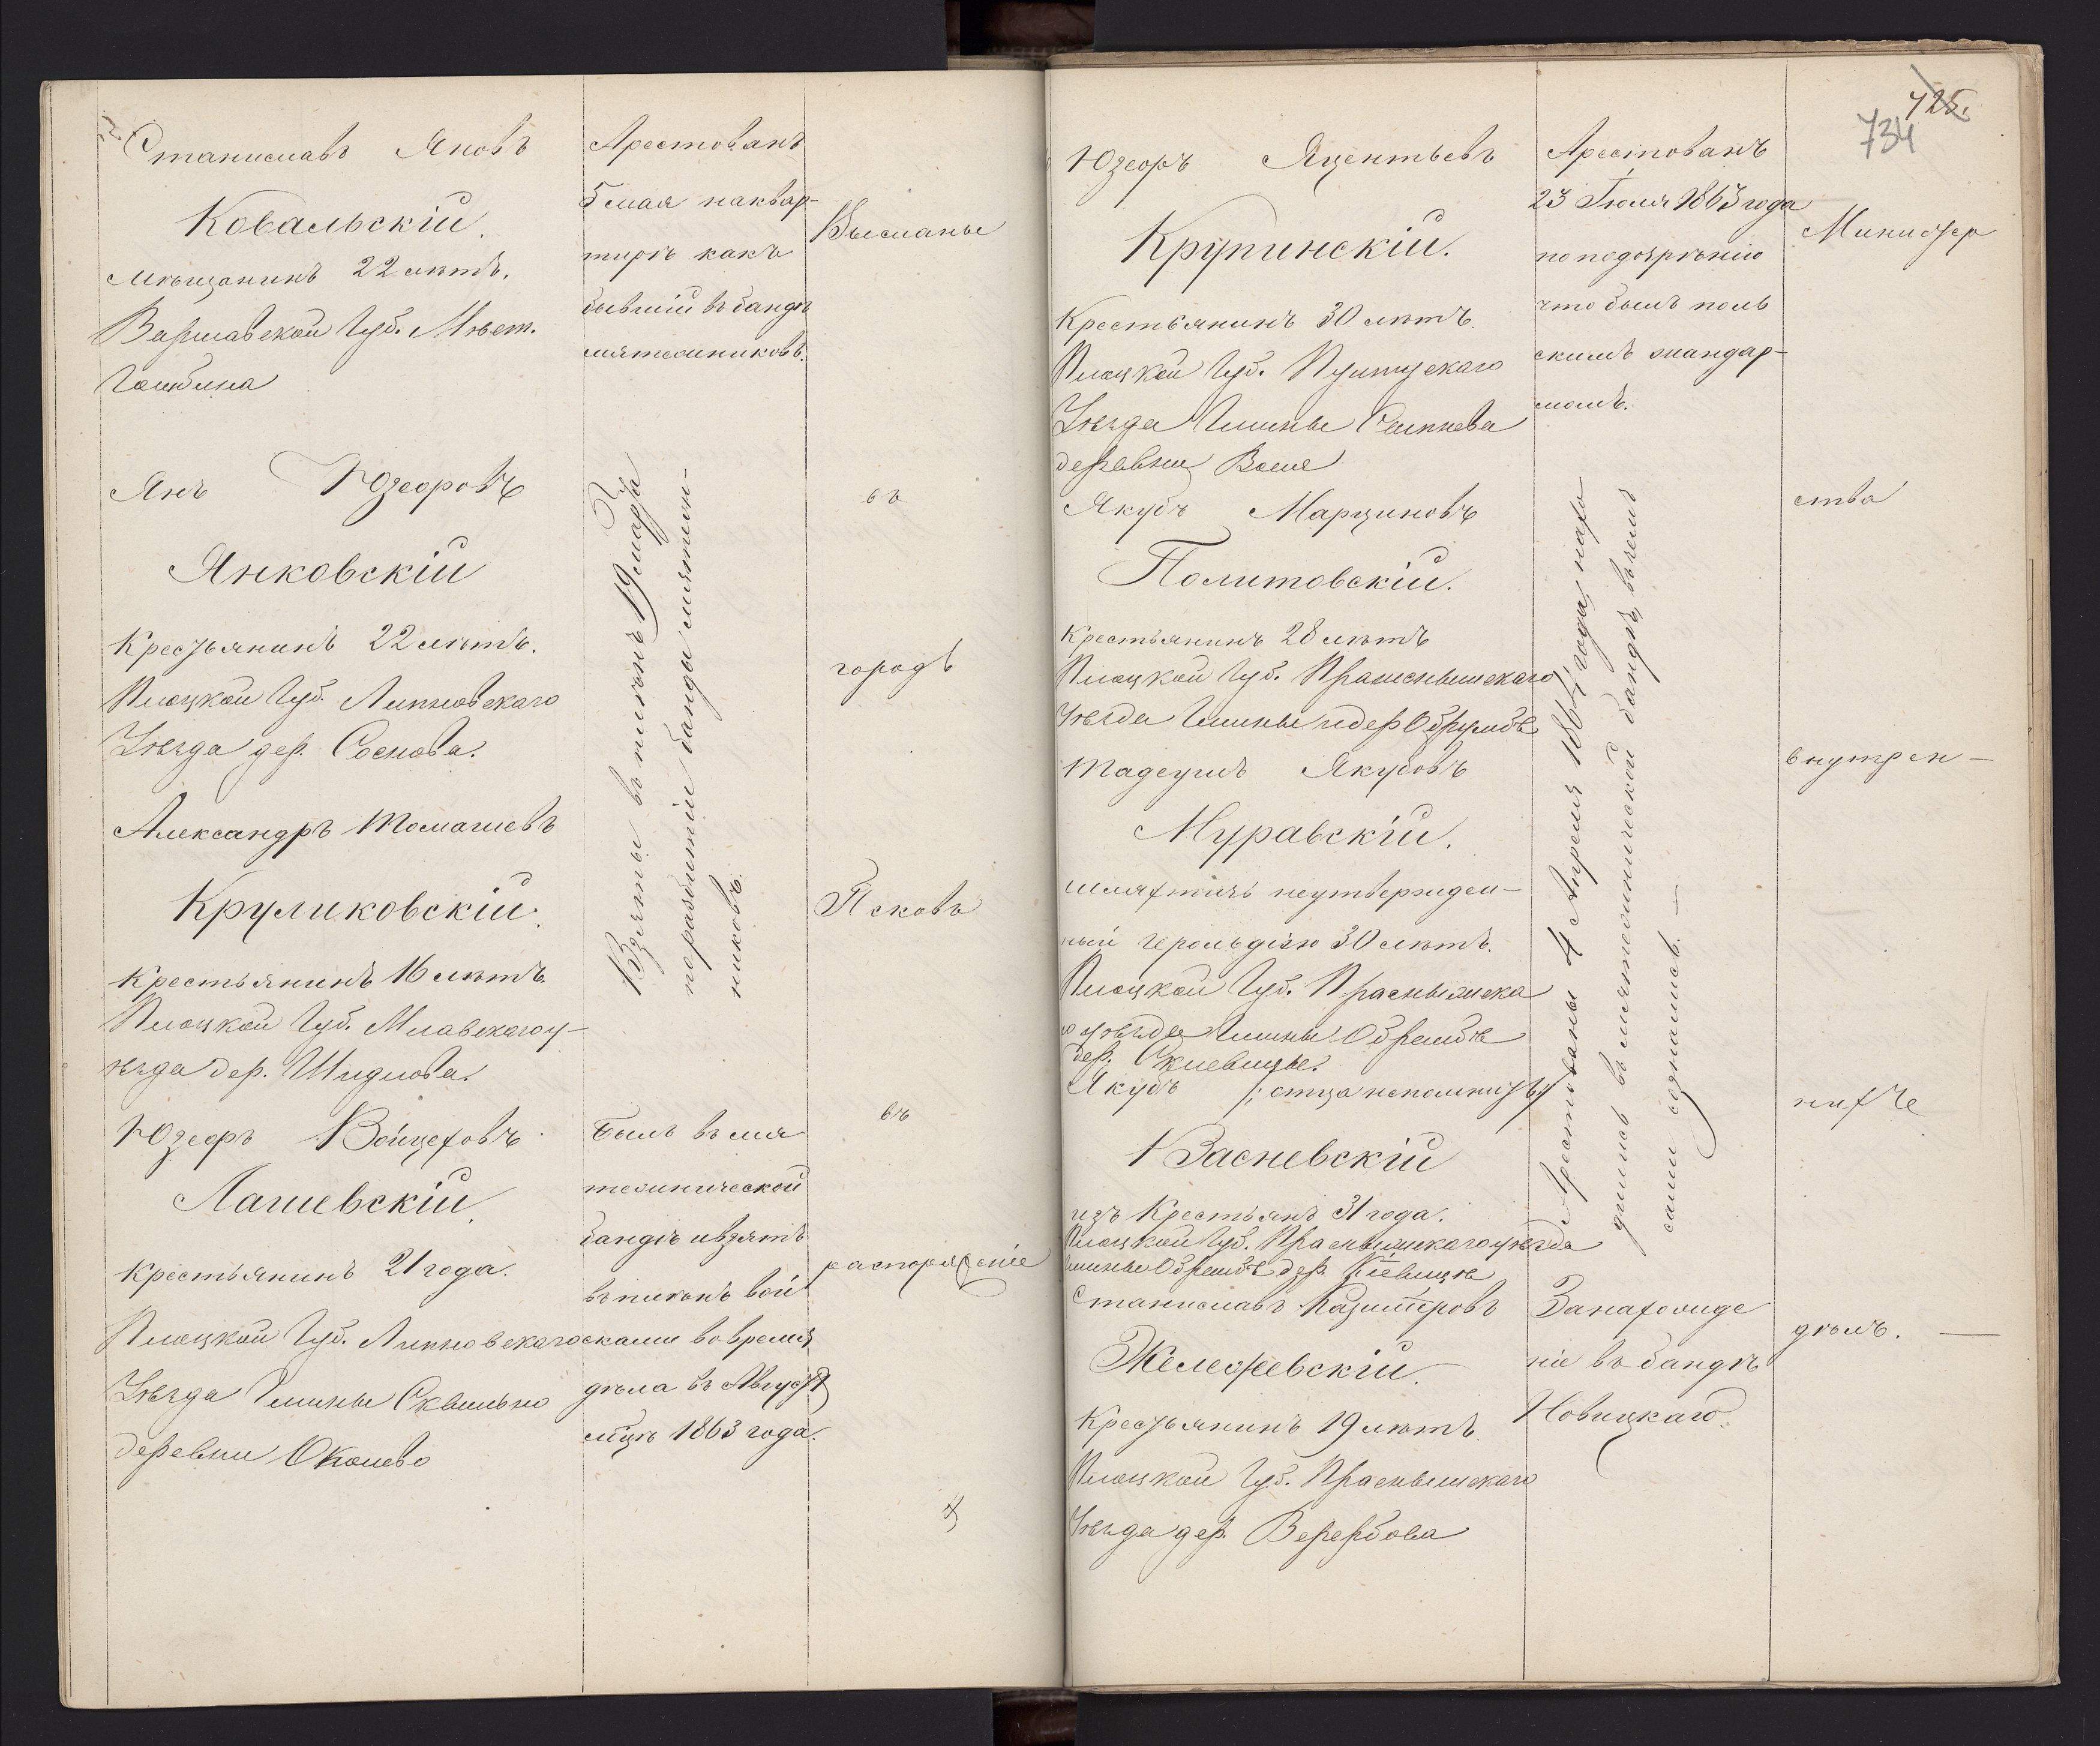 Станиславъ Яновъ
Ковальскій.
Мѣщанинъ 22 лѣтъ.
Варшавской Губ. Мѣст.
Гомбина
Арестованъ
5 мая на квар-
тирѣ какъ
бывшій въ бандѣ
мятежниковъ.
Высланы
Янъ Юзефовъ
Янковскій
Крестьянинъ 22 лѣтъ.
Плоцкой Губ. Липновскаго
Уѣзда дер. Соснова.
въ
городъ
Александръ Томашевъ
Круликовскій.
Крестьянинъ 16 лѣтъ.
Плоцкой Губ. Млавскаго у-
ѣзда дер. Шидлова.
Взяты въ плѣнъ 19 марта
по разбитіи банды мятеж-
никовъ.
Псковъ
Юзефъ Войцеховъ
Лашевскій.
Крестьянинъ 21 года.
Плоцкой Губ. Липновскаго
Уѣзда Гмины Сквильно
деревни Околево
Былъ въ мя
тежнической
бандѣ и взятъ
въ плѣнъ вой
сками во время
дѣла въ Августѣ
м-цѣ 1863 года.
въ
распоряженіе
725.
734
Юзефъ Яцентьевъ
Крупинскій.
Крестьянинъ 30 лѣтъ.
Плоцкой Губ. Пултускаго
Уѣзда Гмины
деревни
Арестованъ
23 Іюля 1863 года
по подозрѣнію
что былъ поль
скимъ жандар-
момъ.
Министер
Якубъ Марциновъ
Политовскій.
Крестьянинъ 28 лѣтъ
Плоцкой Губ. Праснышскаго
Уѣзда Гмины и дер
ства
Тадеушъ Якубовъ
Муравскій.
Шляхтичъ неутвержден-
ный герольдіею 30 лѣтъ.
Плоцкой Губ. Праснышска
го уѣзда Гмины Обрембъ
дер.
внутрен-
Якубъ /: отца непомнитъ :/
Васневскій
изъ Крестьянъ 31 года.
Плоцкой Губ. Праснышскаго уѣзда
Гмины Обрембъ дер.
Арестованы 4 Апреля 1864 года, нахо
дились въ мятежнической бандѣ, въ чемъ
сами сознались.—
нихъ
Станиславъ Казимеровъ
Железжевскій.
Крестьянинъ 19 лѣтъ
Плоцкой Губ. Праснышскаго
Уѣзда дер.
За нахожде
ніе въ бандѣ
Новицкаго.
дѣлъ. —